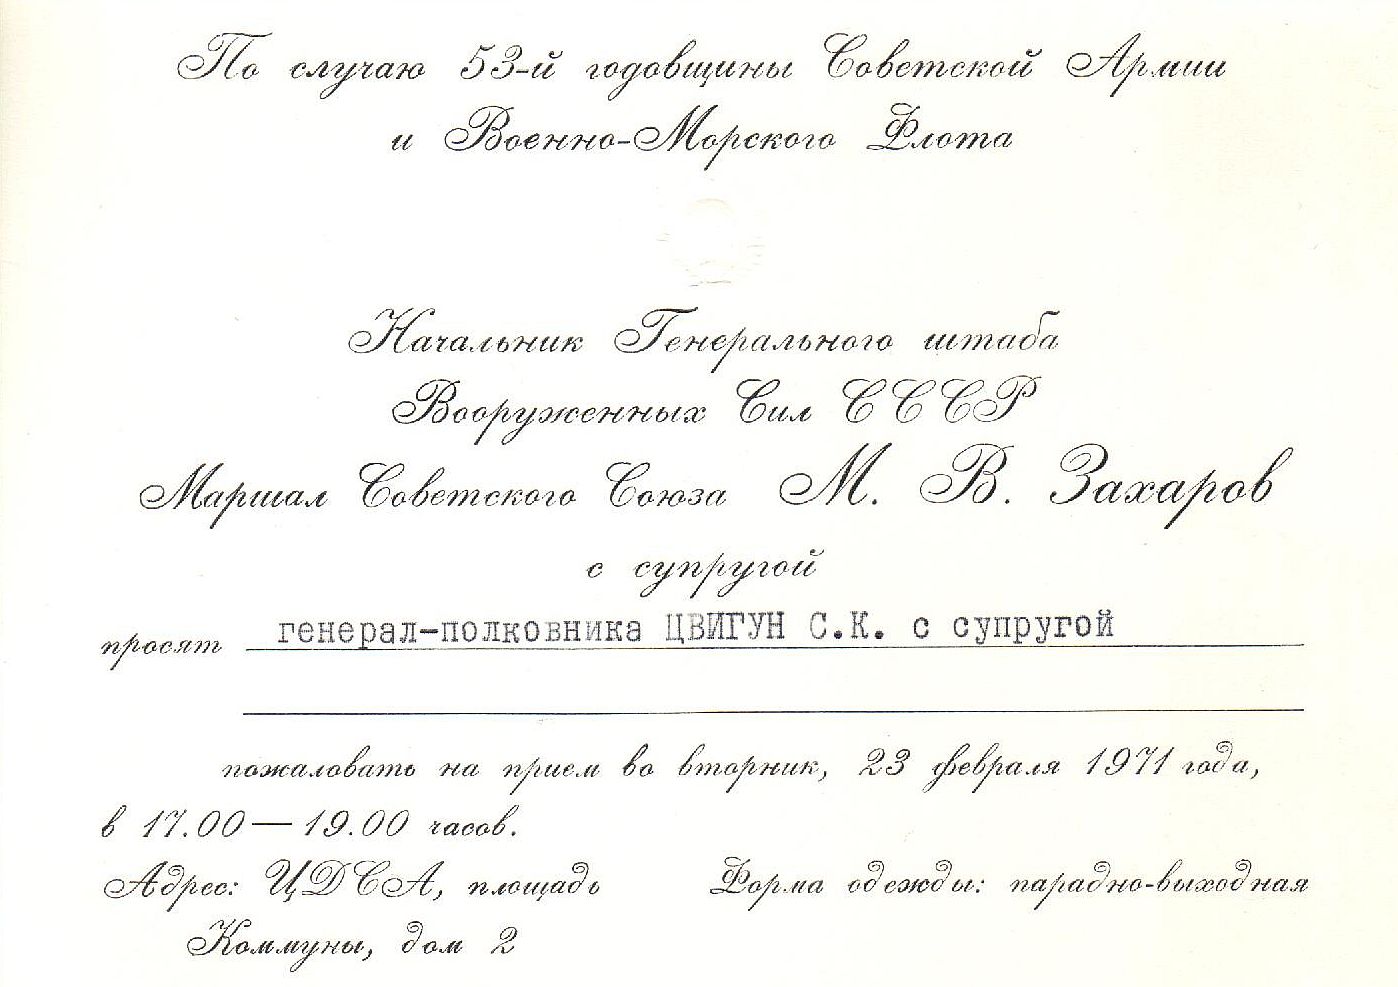 По случаю 53-й годовщины Советской Армии
и Военно-Морского Флота
Начальник Генерального штаба
Вооруженных Сил СССР
Маршал Советского Союза М. В. Захаров
с супругой
просят генерал-полковника ЦВИГУН С.К. с супругой
пожаловать на прием во вторник, 23 февраля 1971 года,
в 17.00—19.00 часов.
Адрес: ЦДСА, площадь Форма одежды: парадно-выходная
Коммуны, дом 2